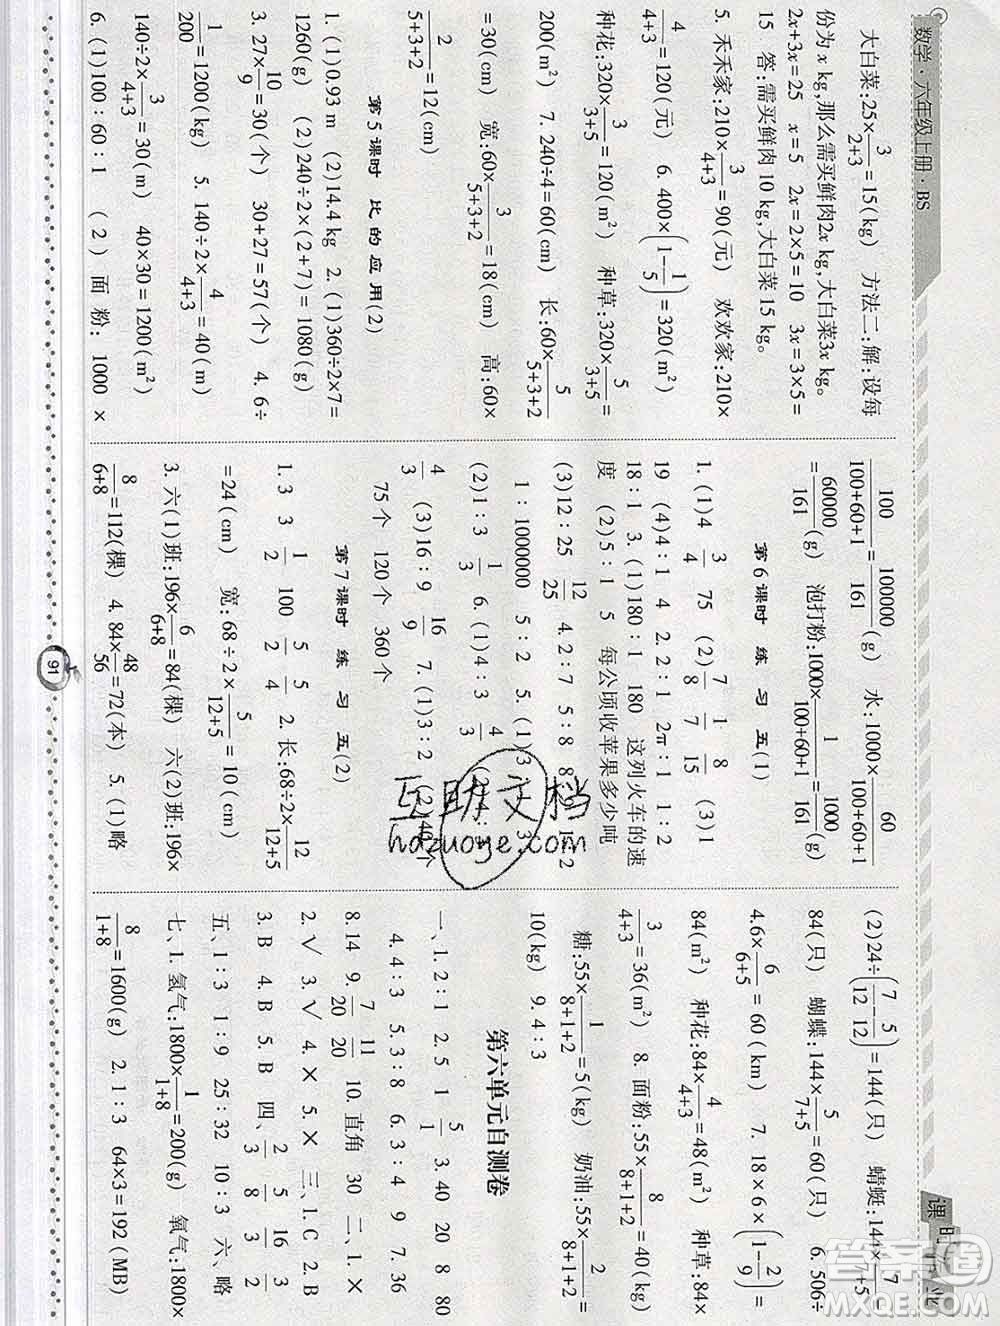 数学·六年级上册·BS
大白菜:25×3/(2+3)=15(kg) 方法二:解:设每
份为x kg,那么需买鲜肉2x kg,大白菜3x kg。
2x+3x=25 x=5 2x=2×5=10 3x=3×5=
15 答:需买鲜肉10 kg,大白菜15 kg。
5. 禾禾家:210×3/(4+3)=90(元) 欢欢家:210×
4/(4+3)=120(元) 6. 400×(1-1/5)=320(m²)
种花:320×3/(3+5)=120(m²) 种草:320×5/(3+5)=
200(m²) 7. 240÷4=60(cm) 长:60×5/(5+3+2)
=30(cm) 宽:60×3/(5+3+2)=18(cm) 高:60×
2/(5+3+2)=12(cm)
第5课时 比的应用(2)
1. (1)0.93 m (2)14.4 kg 2. (1)360÷2×7=
1260(g) (2)240÷2×(2+7)=1080(g)
3. 27×10/9=30(个) 30+27=57(个) 4. 6÷
1/200=1200(kg) 5. 140÷2×4/(4+3)=40(m)
140÷2×3/(4+3)=30(m) 40×30=1200(m²)
6. (1)100:60:1 (2)面粉:1000×
100/(100+60+1)=100000/161(g) 水:1000×60/(100+60+1)
=60000/161(g) 泡打粉:1000×1/(100+60+1)=1000/161(g)
第6课时 练习五(1)
1. (1)4 3/4 75 (2)7/8 1/7 8/15 (3)1
19 (4)4:1 4 2. 2π:1 2π:1
16:9 3. (1)180:1 180 这列火车的速
度 (2)5:1 5 每公顷收苹果多少吨
(3)12:25 12/25 4. 2:1 5:8 8:1 1:2
1:1000000 5:2 5. (1)3
(2)1:3 1/3 6. (1)4:3 4/3
4/3 (3)16:9 16/9 7. (1)3:2 (2)40个
75个 120个 360个
第7课时 练习五(2)
1. 3 3 1/2 100 5/2 5/4 2. 长:68÷2×12/(12+5)
=24(cm) 宽:68÷2×5/(12+5)=10(cm)
3. 六(1)班:196×6/(6+8)=84(棵) 六(2)班:196×
8/(6+8)=112(棵) 4. 84×48/56=72(本) 5. (1)略
(2)24÷(7/12-5/12)=144(只) 蜻蜓:144×7/(7+5)=
84(只) 蝴蝶:144×5/(7+5)=60(只) 6. 506÷
4.6×6/(6+5)=60(km) 7. 18×6×(1-2/9)=
84(m²) 种花:84×4/(4+3)=48(m²) 种草:84×
3/(4+3)=36(m²) 8. 面粉:55×8/(8+1+2)=40(kg)
糖:55×1/(8+1+2)=5(kg) 奶油:55×2/(8+1+2)=
10(kg) 9. 4:3
第六单元自测卷
一、1. 2:1 2. 5 1 5/1 3. 40 20 8
4. 4:3 5. 3:8 6. 3:4 7. 36
8. 14 9. 7/20 11/20 10. 直角 30 二、1. ×
2. √ 3. √ 4. × 5. × 三、1. C 2. B
3. B 4. B 5. B 四、2/3 5/8 16/3 2/3
五、1:3 1:9 25:32 10:3 六、略
七、1. 氢气:1800×1/(1+8)=200(g) 氧气:1800×
8/(1+8)=1600(g) 2. 1:3 64×3=192(MB)
91
互助文档
hdzuoye.com
课时作业
答案圈
MXQE.COM